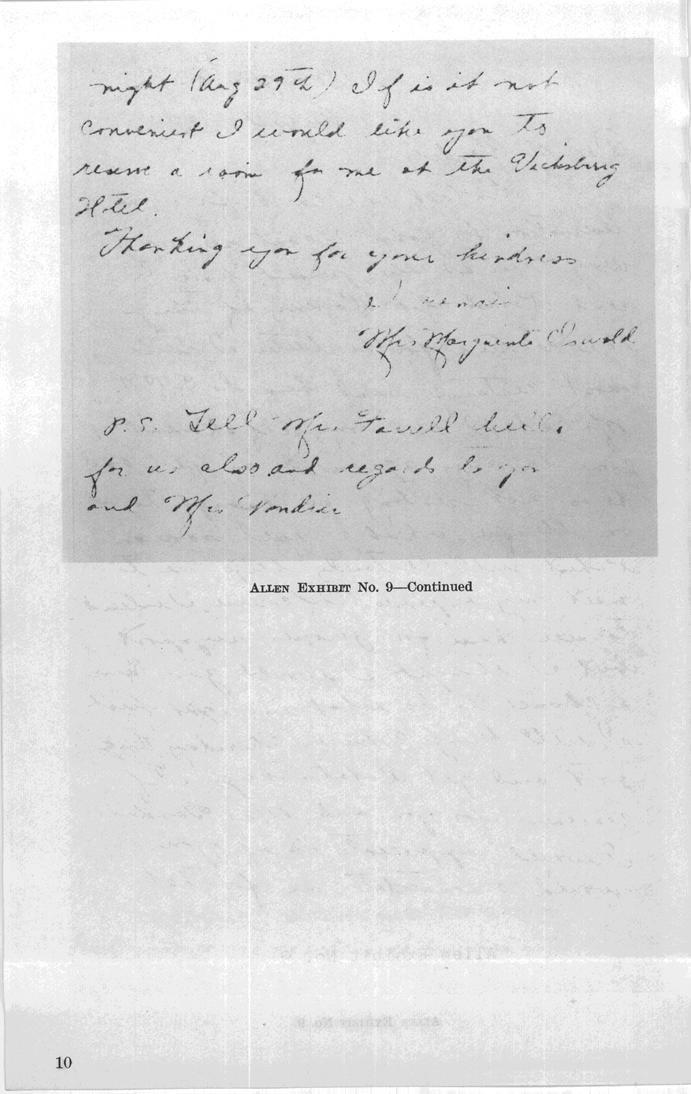 night (Aug 29th) If is it not
convenient I would like you to
reserve a room for me at the Vicksburg
Hotel.
Thanking you for your kindness
I remain
Mrs Marguerite Oswald
P.S. Tell Mrs. Farrell hello
for us also and regards to you
and Mrs
ALLEN EXHIBIT No. 9—Continued
10